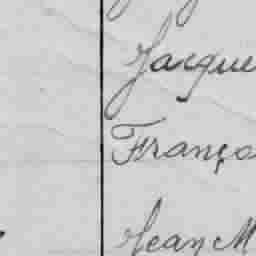 Jacque
Franço
Jean M